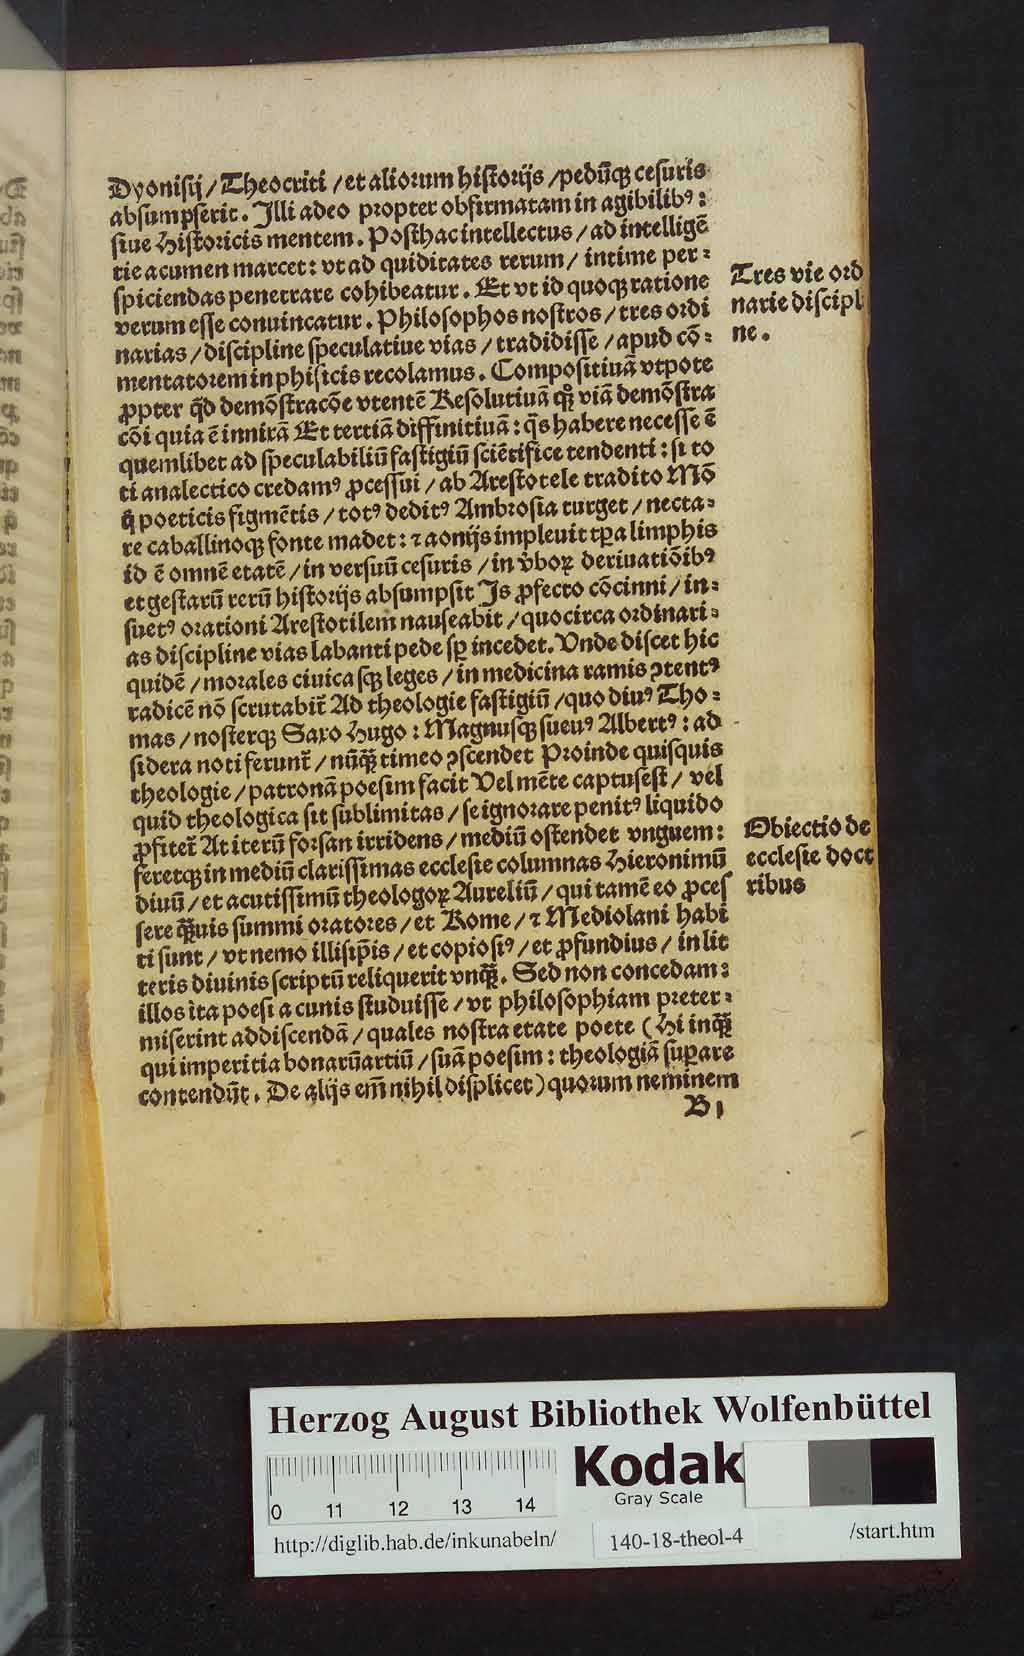 Dyonisij / Theocriti / et aliorum historijs / pedūqȝ cesuris
absumpserit. Illi adeo propter obfirmatam in agibilibꝰ:
siue Historicis mentem. Posthac intellectus / ad intelligē
tie acumen marcet: vt ad quiditates rerum / intime per⸗
spiciendas penetrare cohibeatur. Et vt id quoqȝ ratione
verum esse conuincatur. Philosophos nostros / tres ordi
narias / discipline speculatiue vias / tradidisse / apud cō⸗
mentatorem in phisicis recolamus. Compositiuā vtpote
ꝓpter qd̄ demōstracōe vtentē Resolutiuā qꝫ viā demōstra
cōi quia ē innixā Et tertiā diffinitiuā: q̄s habere necesse ē
quemlibet ad speculabiliū fastigiū sciētifice tendenti: si to
ti analectico credamꝰ ꝓcessui / ab Arestotele tradito Mō
q̄ poeticis figmētis / totꝰ deditꝰ Ambrosia turget / necta⸗
re caballinoqȝ fonte madet: ⁊ aonijs impleuit tꝑa limphis
id ē omnē etatē / in versuū cesuris / in v̄boꝝ deriuatiōibꝰ
et gestarū rerū historijs absumpsit Is ꝓfecto cōcinni / in⸗
suetꝰ orationi Arestotilem nauseabit / quocirca ordinari⸗
as discipline vias labanti pede sꝑ incedet. Vnde discet hic
quidē / morales ciuicasqȝ leges / in medicina ramis ꝯtentꝰ
radicē nō scrutabit̄ Ad theologie fastigiū / quo diuꝰ Tho⸗
mas / nosterqȝ Saxo Hugo: Magnusqȝ sueuꝰ Albertꝰ: ad
sidera noti ferunt̄ / nūqȝ̄ timeo ꝯscendet Proinde quisquis
theologie / patronā poesim facit Vel mēte captus est / vel
quid theologica sit sublimitas / se ignorare penitꝰ liquido
ꝓfitet̄ At iterū forsan irridens / mediū ostendet vnguem:
feretqȝ in mediū clarissimas ecclesie columnas Hieronimū
diuū / et acutissimū theologoꝝ Aureliū / qui tamē eo ꝓces
sere qȝ̄uis summi oratores / et Rome / ⁊ Mediolani habi
ti sunt / vt nemo illis ip̄is / et copiosiꝰ / et ꝓfundius / in lit
teris diuinis scriptū reliquerit vnqȝ̄. Sed non concedam:
illos ita poesi a cunis studuisse / vt philosophiam preter⸗
miserint addiscendā / quales nostra etate poete (Hi inqȝ̄
qui imperitia bonarū artiū / suā poesim: theologiā suꝑare
contendūt. De alijs em̄ nihil displicet) quorum neminem
B j
Tres vie ord
narie discipl
ne.
Obiectio de
ecclesie doct
ribus
Herzog August Bibliothek Wolfenbüttel
Kodak
Gray Scale
0 11 12 13 14
http://diglib.hab.de/inkunabeln/
140-18-theol-4
/start.htm